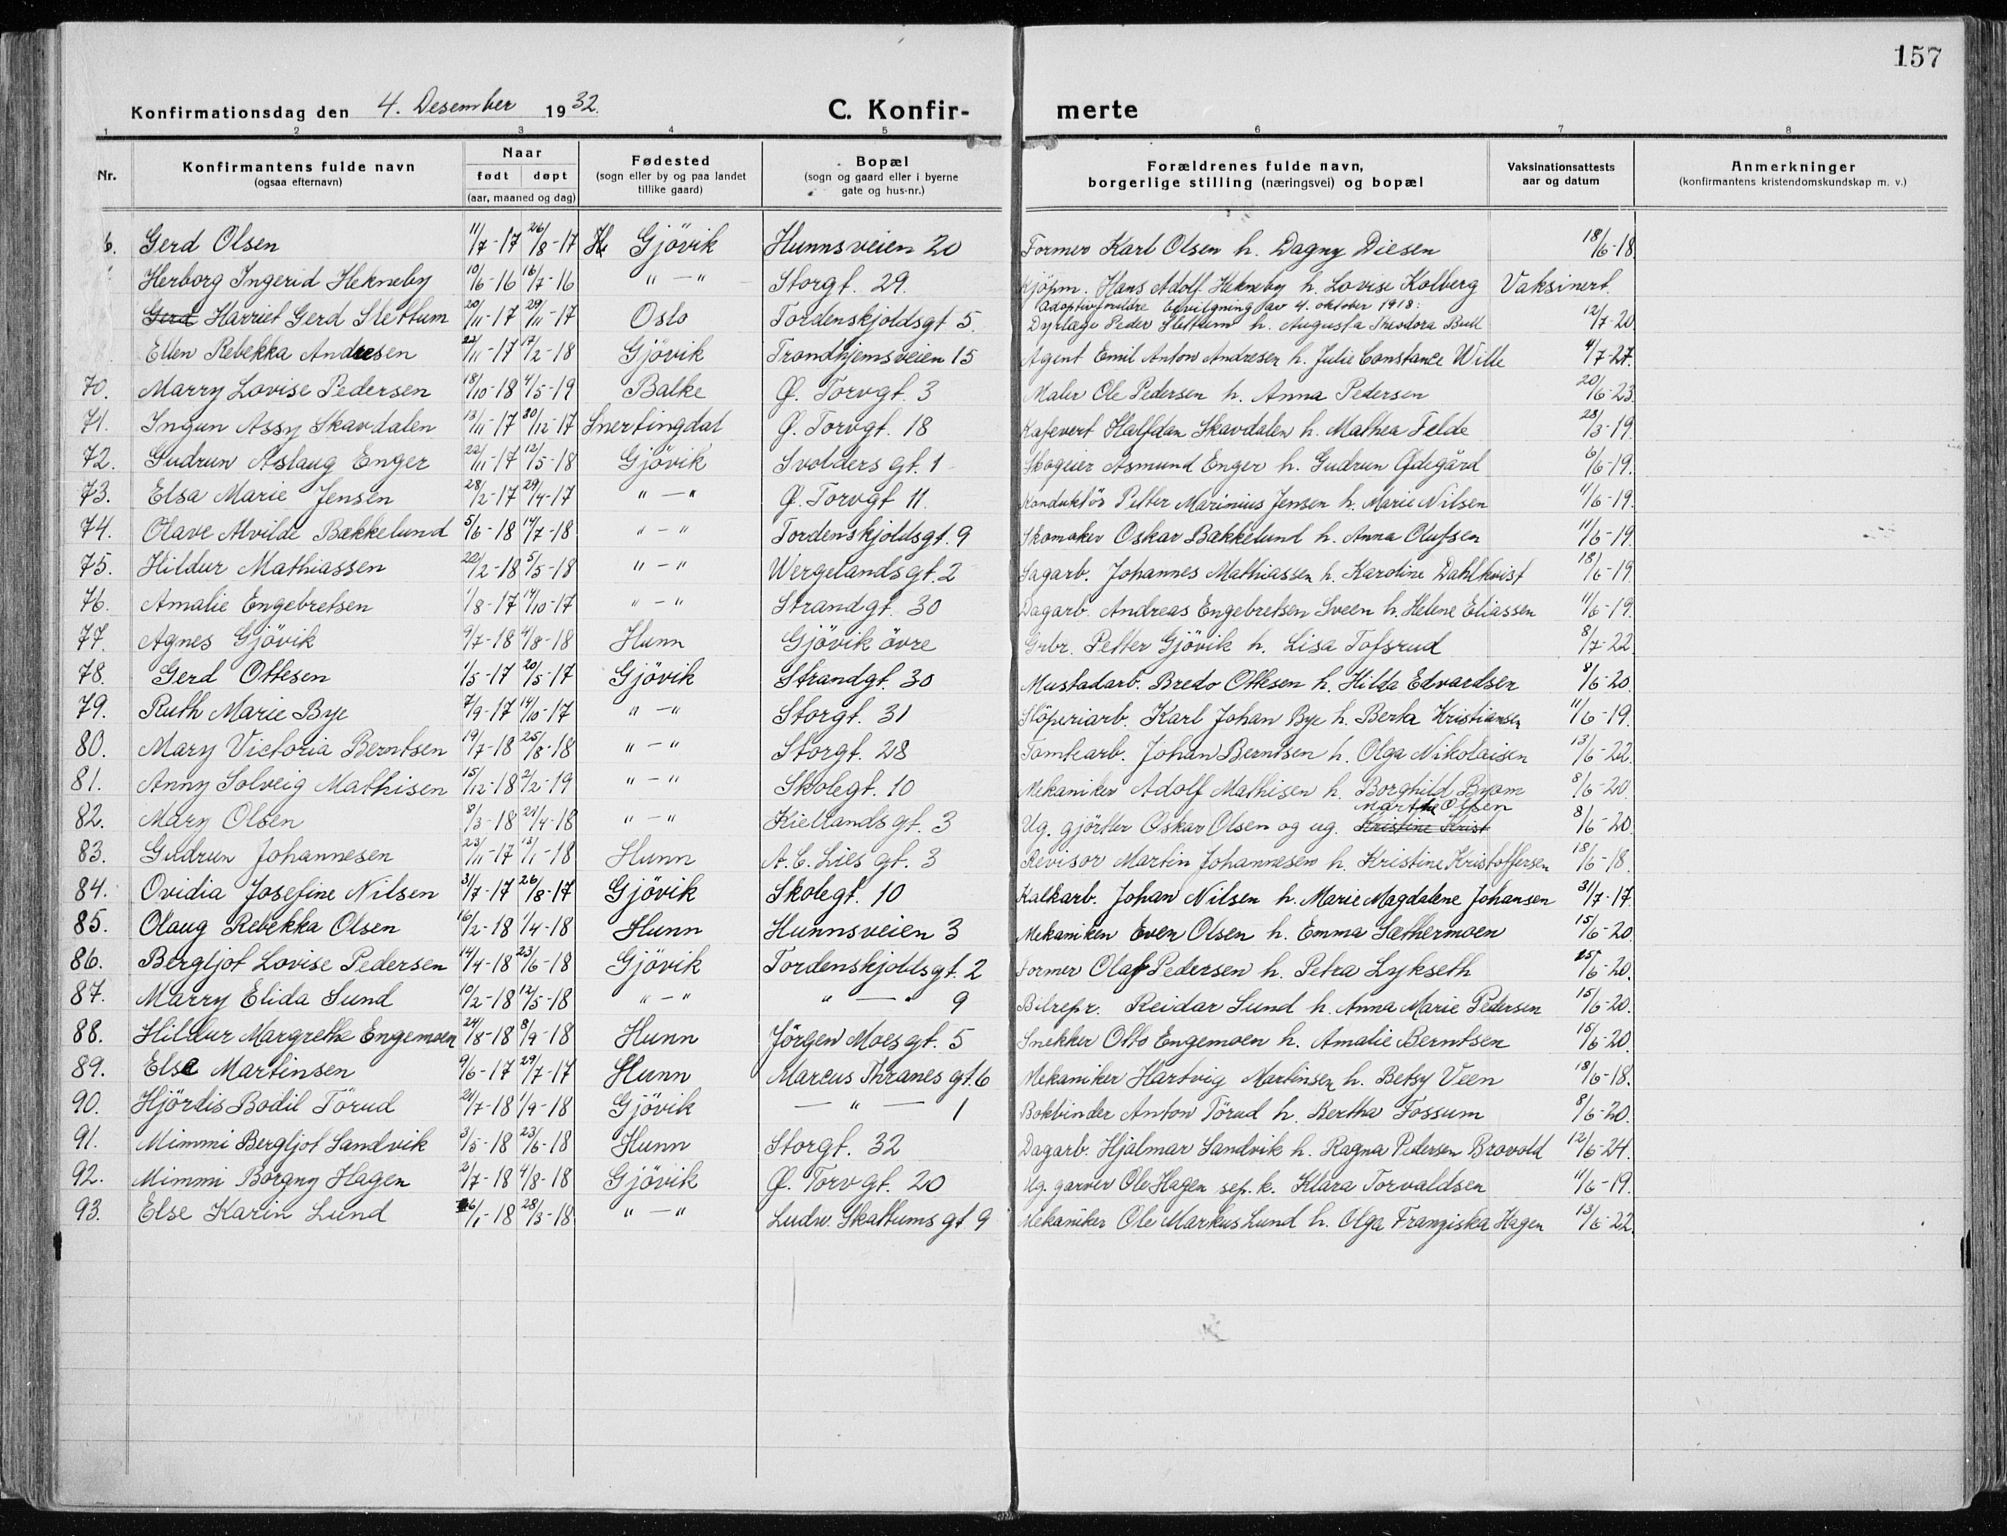 157
Konfirmationsdag den 4. Desember 1932.
C. Konfirmerte
1 2 3 4 5 6 7 8
Nr. Konfirmantens fulde navn (ogsaa efternavn) Naar født døpt (aar, maaned og dag) Fødested (sogn eller by og paa landet tillike gaard) Bopæl (sogn og gaard eller i byerne gate og hus-nr.) Forældrenes fulde navn, borgerlige stilling (næringsvei) og bopæl Vaksinationsattests aar og datum Anmerkninger (konfirmantens kristendomskundskap m. v.)
6. Gerd Olsen 11/7-17 26/8-17 Gjövik Hunnsveien 20 Former Karl Olsen h. Dagny Diesen 18/6-18
Herborg Ingerid Hekneby 10/6-16 16/7-16 " — " Storgt. 29. Kjöpm. Hans Adolf Hekneby h. Lovise Kolberg Vaksinert.
Adoptivforeldre bevilgning av 4. oktober 1918:
Gerd Harriet Gerd Slettum 20/11-17 29/11-17 Oslo Tordenskjoldsgt 5. Dyrlæge Peder Slettum h. Augusta Theodora Bull 12/7-20
Ellen Rebekka Andresen 22/11-17 17/2-18 Gjövik Trondhjemsveien 15 Agent Emil Anton Andresen h. Julie Constance Wille 4/7-27.
70. Marry Lovise Pedersen 18/10-18 4/5-19 Balke Ø. Torvgt. 3 Maler Ole Pedersen h. Anna Pedersen 20/6-23
71. Ingun Assy Skavdalen 13/11-17 30/12-17 Snertingdal Ø. Torvgt. 18 Kafevert Halfdan Skavdalen h. Mathea Felde 28/3-19.
72. Gudrun Aslaug Enger 22/11-17 12/5-18 Gjövik Svolders gt. 1 Skogeier Asmund Enger h. Gudrun Ødegård 6/6-19.
73. Elsa Marie Jensen 28/2-17 29/4-17 " — " Ø. Torvgt 11. Konduktör Petter Marinius Jensen h. Marie Nilsen 11/6-19.
74. Olave Alvilde Bækkelund 5/6-18 14/7-18 " — " Tordenskjoldsgt. 9 Skomaker Oskar Bækkelund h. Anna Olufsen 11/6-19.
75. Hildur Mathiassen 20/2-18 5/5-18 " — " Wergelandsgt. 2 Sagarb. Johannes Mathiassen h. Karoline Dahlkvist 18/6-19
76. Amalie Engebretsen 1/8-17 14/10-17 " — " Strandgt. 30 Dagarb. Andreas Engebretsen Sveen h. Helene Eliassen 11/6-19.
77. Agnes Gjövik 9/7-18 4/8-18 Hunn Gjövik övre Grbr. Petter Gjövik h. Lisa Tofsrud 8/7-22
78. Gerd Ottesen 1/5-17 20/5-17 Gjövik Strandgt. 30 Mustadarb. Bredo Ottesen h. Hilda Edvardsen 8/6-20.
79. Ruth Marie Bye 7/9-17 14/10-17 " — " Storgt. 31 Stöperiarb. Karl Johan Bye h. Berta Kristiansen 11/6-19.
80. Mary Victoria Berntsen 19/7-18 25/8-18 " — " Storgt. 28 Tomtearb. Johan Berntsen h. Olga Nikolaisen 13/6-22.
81. Anny Solveig Mathisen 15/12-18 2/2-19 " — " Skolegt. 10 Mekaniker Adolf Mathisen h. Borghild Bram 8/6-20.
Marthe Olsen
82. Mary Olsen 8/3-18 21/4-18 " — " Kiellands gt. 3 Ug. gjörtler Oskar Olsen og ug. Kristine Krist 8/6-20
83. Gudrun Johannesen 23/11-17 13/1-18 Hunn A. C. Lies gt. 3 Revisor Martin Johannesen h. Kristine Kristoffersen 18/6-18.
84. Ovidia Josefine Nilsen 3/7-17 26/8-17 Gjövik Skolegt. 10 Kalkarb. Johan Nilsen h. Marie Magdalene Johansen 31/7-17.
85. Olaug Rebekka Olsen 16/2-18 1/4-18 Hunn Hunnsveien 3 Mekaniker Even Olsen h. Emma Sæthermoen 15/6-20
86. Bergljot Lovise Pedersen 14/4-18 23/6-18 Gjövik Tordenskjoldsgt. 2 Former Olaf Pedersen h. Petra Lykseth 25/6-20.
87. Marry Elida Sund 10/2-18 12/5-18 " — " " — " 9 Bilrepr. Reidar Sund h. Anna Marie Pedersen 15/6-20.
88. Hildur Margrethe Engemoen 24/8-18 8/9-18 Hunn Jörgen Moes gt. 5 Snekker Otto Engemoen h. Amalie Berntsen 15/6-20.
89. Else Martinsen 9/6-17 29/7-17 Hunn Marcus Thranes gt. 6 Mekaniker Hartvig Martinsen h. Betsy Veen 18/6-18.
90. Hjördis Bodil Törud 21/7-18 1/9-18 Gjövik — " — 1 Bokbinder Anton Törud h. Bertha Fossum 8/6-20.
91. Mimmi Bergljot Sandvik 3/5-18 23/6-18 Hunn Storgt. 32 Dagarb. Hjalmar Sandvik h. Ragna Pedersen Brovold 12/6-24.
92. Mimmi Borgny Hagen 2/7-18 4/8-18 Gjövik Ø. Torvgt. 20 Ug. garver Ole Hagen sep. k. Klara Torvaldsen 11/6-19.
93. Else Karin Lund 6/1-18 28/3-18 " — " Ludv. Skattums gt. 9 Mekaniker Ole Markus Lund h. Olga Franziska Hagen 13/6-22.